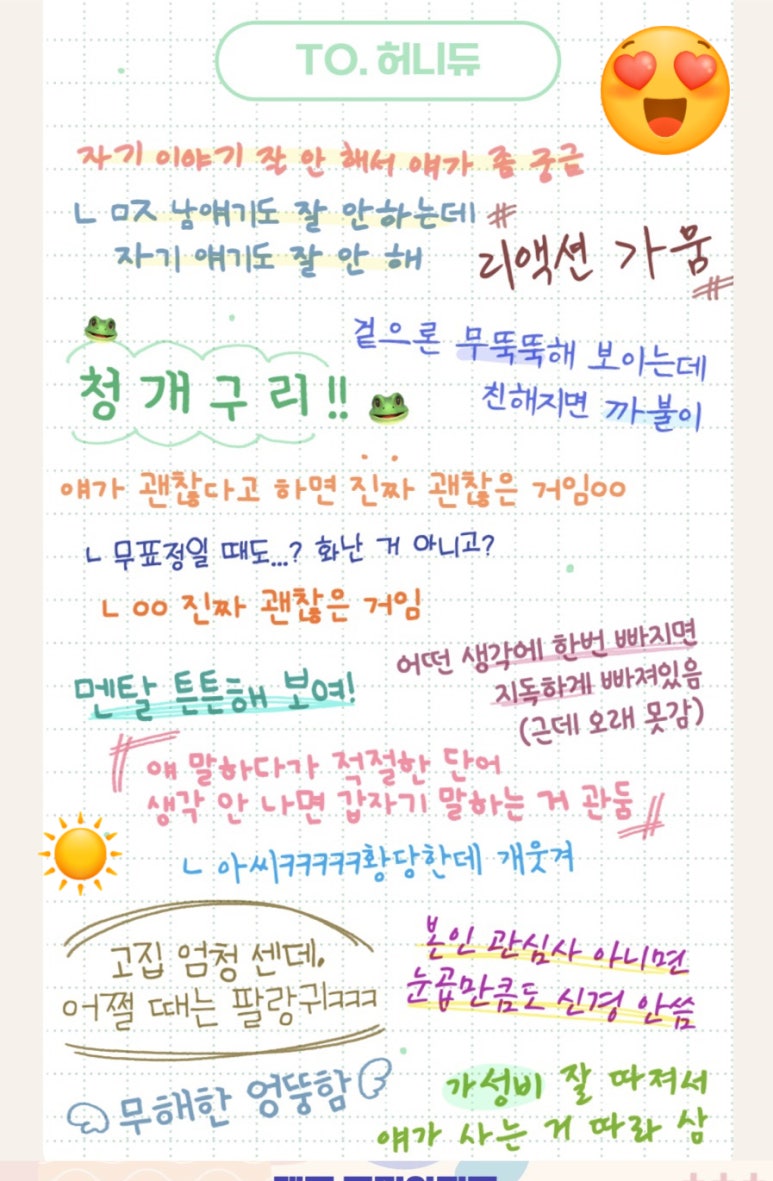 TO. 허니듀
자기 이야기 잘 안 해서 얘가 좀 궁금
ㄴ ㅁㅈ 남얘기도 잘 안하는데
자기 얘기도 잘 안 해
#리액션 가뭄#
청개구리!!
겉으론 무뚝뚝해 보이는데
친해지면 까불이
얘가 괜찮다고 하면 진짜 괜찮은 거임ㅇㅇ
ㄴ 무표정일 때도...? 화난 거 아니고?
ㄴ ㅇㅇ 진짜 괜찮은 거임
어떤 생각에 한번 빠지면
지독하게 빠져있음
(근데 오래 못감)
멘탈 튼튼해 보여!
얘 말하다가 적절한 단어
생각 안 나면 갑자기 말하는 거 관둠
ㄴ 아씨ㅋㅋㅋㅋㅋ황당한데 개웃겨
고집 엄청 센데,
어쩔 때는 팔랑귀ㅋㅋㅋ
본인 관심사 아니면
눈곱만큼도 신경 안씀
무해한 엉뚱함
가성비 잘 따져서
얘가 사는 거 따라 삼